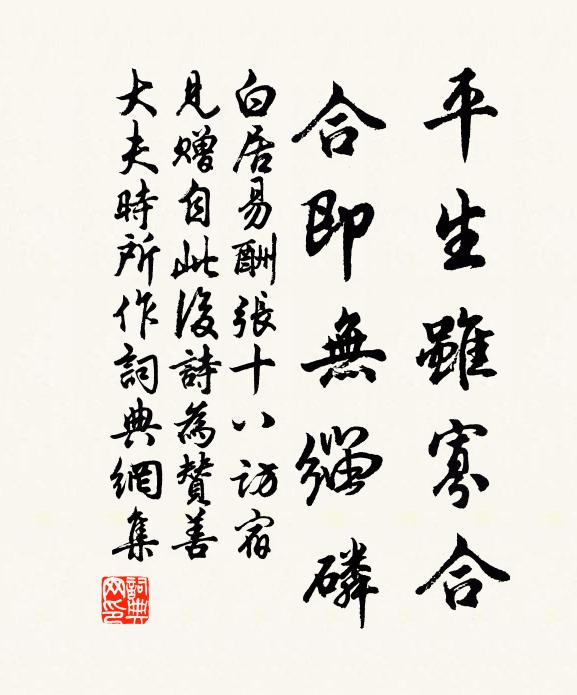 平生雖寡合
合即無緇磷
白居易酬張十八訪宿
見贈自此後詩為贊善
大夫時所作詞典網集
詞典網印